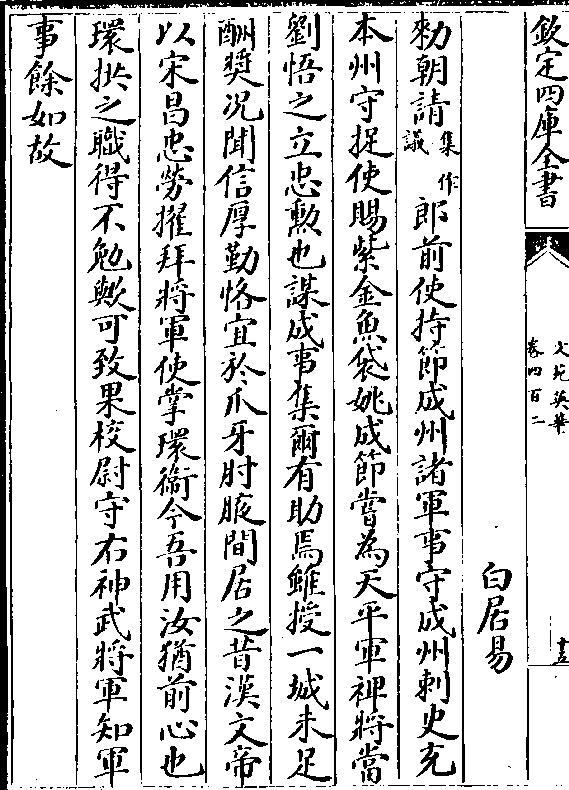 欽定四庫全書
文苑英華
卷四百二
十五
白居易
勅朝請集作議郎前使持節成州諸軍事守成州刺史充
本州守捉使賜紫金魚袋姚成節嘗為天平軍裨將當
劉悟之立忠勲也謀成事集爾有助焉雖授一城未足
酬奬况聞信厚勤恪宜於爪牙肘腋間居之昔漢文帝
以宋昌忠勞擢拜將軍使掌環衞今吾用汝猶前心也
環拱之職得不勉歟可致果校尉守右神武將軍知軍
事餘如故